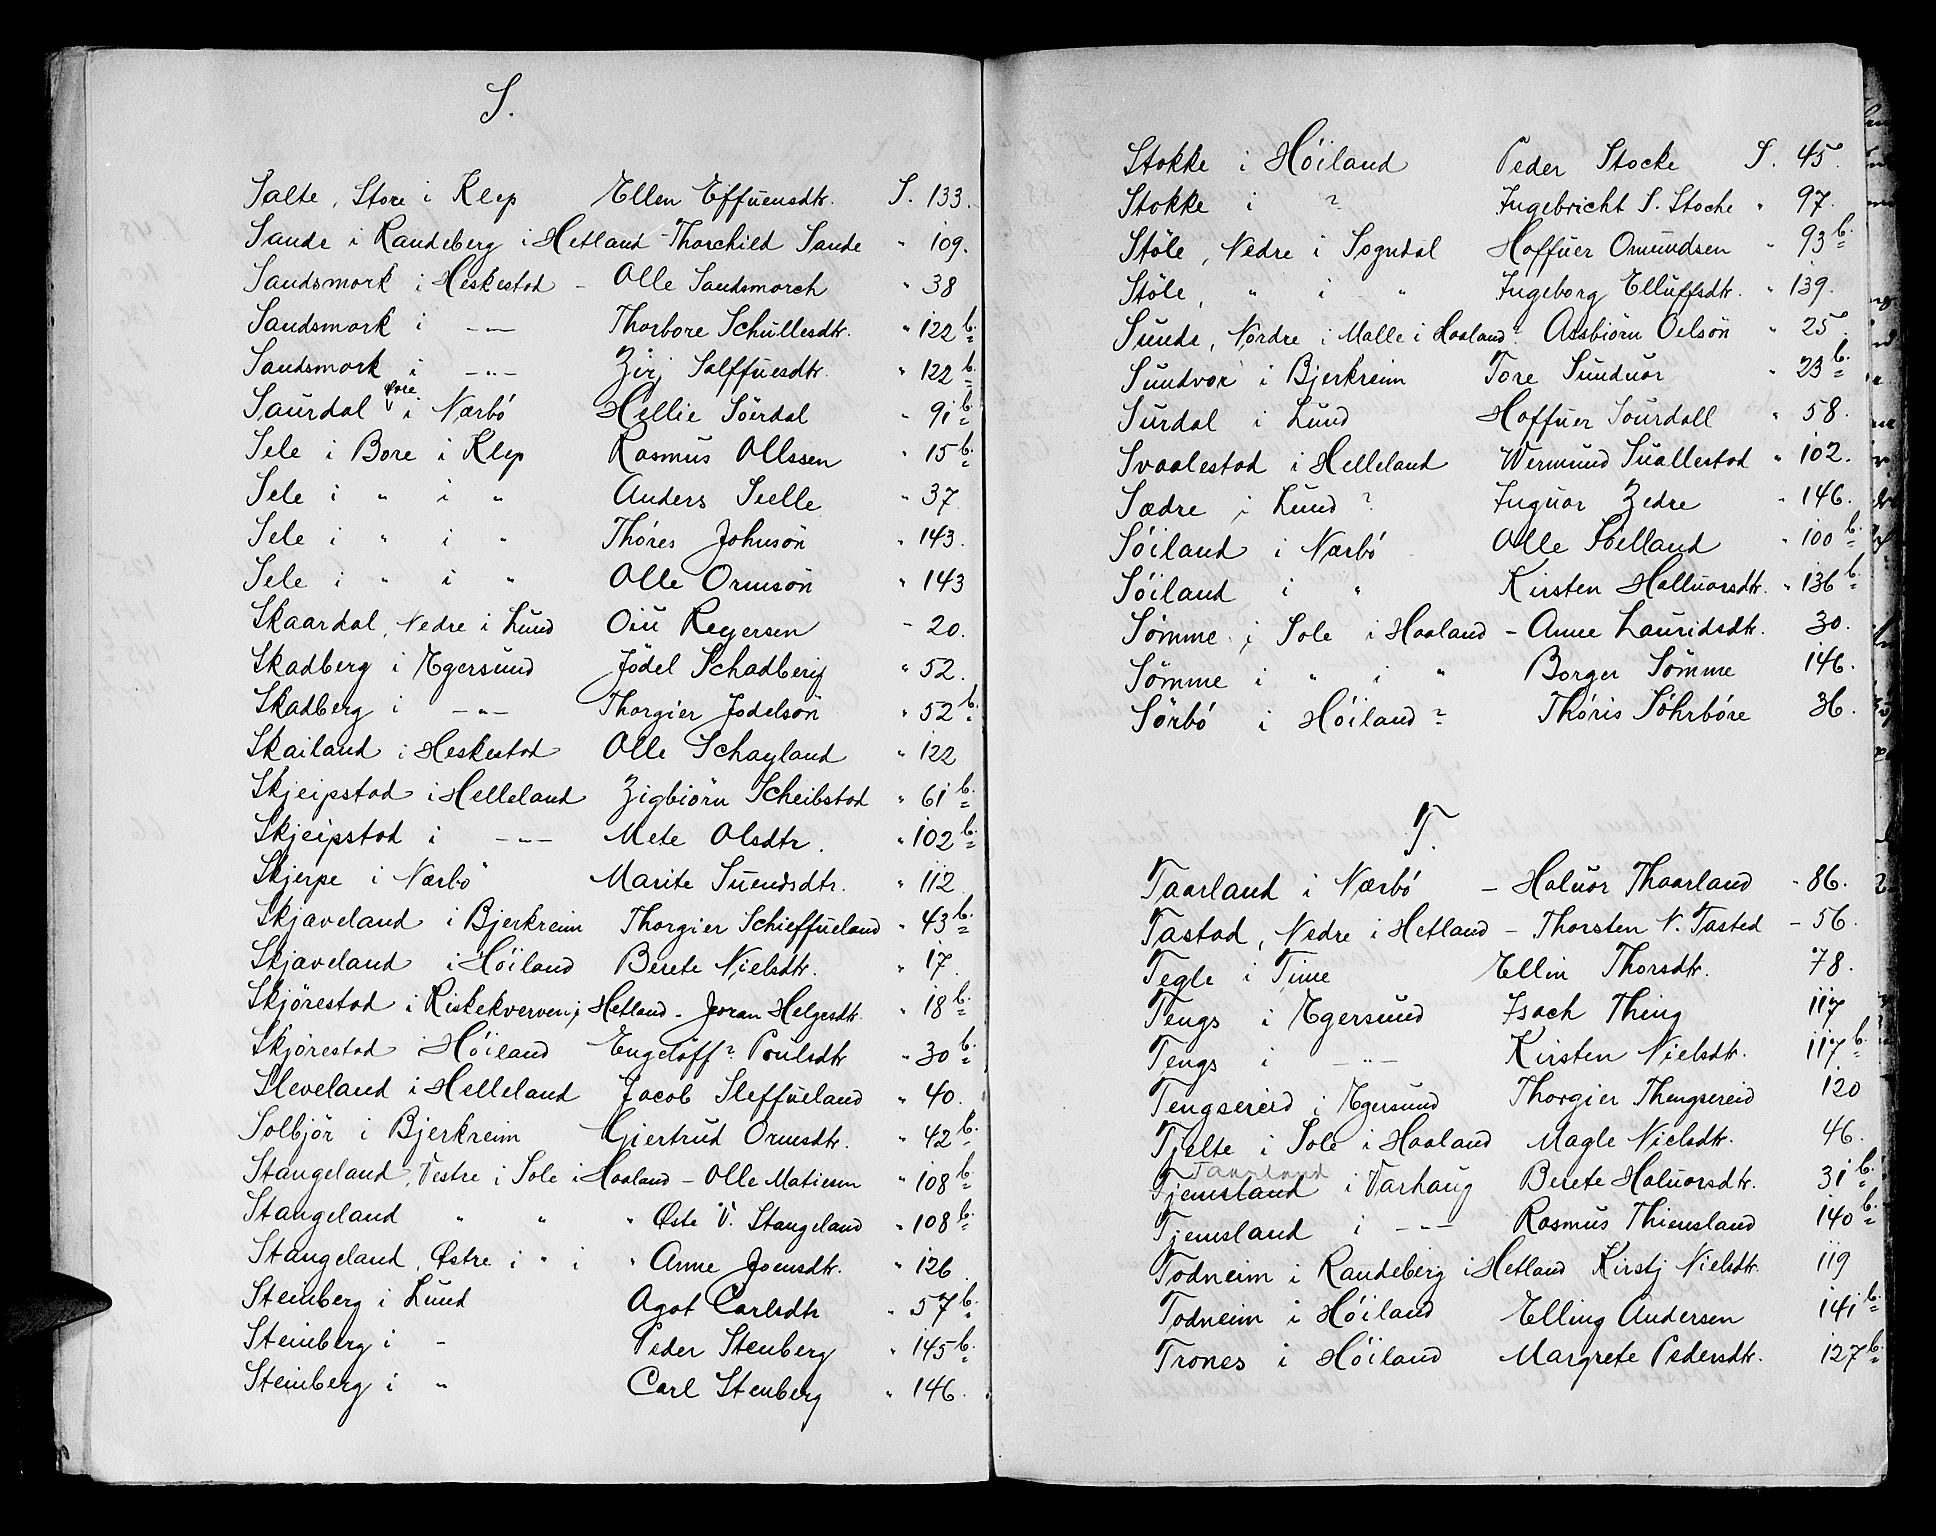 S.
Salte, Store i Klep Ellen Effuensdtr. S. 133.
Sande i Randeberg i Hetland - Thorchild Sande " 109.
Sandsmork i Heskestad - Olle Sandsmorch " 38
Sandsmork i -"- Thorbore Schullesdtr. " 122 b.
Sandsmork i -"- Zirj Solffuesdtr. " 122 b.
Saurdal øvre i Nærbö Hellie Söerdal " 91 b.
Sele i Bore i Klep Rasmus Ollssen " 15 b.
Sele i " i " Anders Seelle " 37.
Sele i " i " Thöres Johnsön " 143.
Sele i " i " Olle Ormsön " 143
Skaardal, Nedre i Lund Oiu Regersen - 20.
Skadberg i Egersund Jödel Schadberg " 52.
Skadberg i -"- Thorgier Jodelsön " 52 b.
Skailand i Heskestad Olle Schayland " 122
Skjeipstad i Helleland Zigbiörn Scheibstad " 61 b.
Skjeipstad i -"- Mete Olsdtr. " 102 b.
Skjerpe i Nærbö Marite Suendsdtr. " 112
Skjæveland i Bjerkreim Thorgier Schieffueland " 43 b.
Skjæveland i Höiland Berete Nielsdtr. " 17.
Skjörestad i Riskekverven i Hetland - Joran Helgesdtr. " 18 b.
Skjörestad i Höiland Engeloff? Poulsdtr " 30 b.
Sleveland i Helleland Jacob Sleffueland " 40.
Solbjör i Bjerkreim Gjertrud Ormsdtr. " 42 b.
Stangeland, Vestre i Sole i Haaland - Olle Matiesen " 108 b.
Stangeland " " " Øste V. Stangeland " 108 b.
Stangeland, Østre i " i " Anne Joensdtr. " 126
Steinberg i Lund Agot Carlsdtr " 57 b.
Steinberg i - Peder Stenberg " 145 b.
Steinberg i " Carl Stenberg " 146.
Stokke i Höiland Peder Stocke S. 45.
Stokke i ? Ingebricht S. Stoche " 97.
Stöle, Nedre i Sogndal Hoffuer Omundsen " 93 b.
Stöle, " i " Ingeborg Elluffsdtr. " 139.
Sunde, Nordre i Malle i Haaland? Assbiörn Oelsön " 25.
Sundvor i Bjerkreim Tore Sunduor " 23 b.
Surdal i Lund Hoffuer Sourdall " 58.
Svaalestad i Helleland Wermund Suallestad " 102.
Sædre i Lund? Inguar Zedre " 146.
Söiland i Nærbö Olle Söelland " 100 b.
Söiland i " Kirsten Halluorsdtr. " 136 b.
Sömme i Sole i Haaland - Anne Lauridsdtr. 30.
Sömme i " i " Borger Sömme 146.
Sörbö i Höiland? Thöris Söhrböre 36.
T.
Taarland i Nærbö - Haluor Thaarland - 86.
Tastad, Nedre i Hetland - Thorsten N. Tasted - 56.
Tegle i Time Ellin Thorsdtr. 78.
Tengs i Egersund Isach Thing 117
Tengs i -"- Kirsten Nielsdtr. 117 b.
Tengsereid i Egersund Thorgier Thengsereid 120
Tjelte i Sole i Haaland Magle Nielsdtr. 46.
Taarland
Tjemsland i Varhaug Berete Haluorsdtr. 31 b.
Tjemsland i -"- Rasmus Thiensland 140 b.
Todneim i Randeberg i Hetland Kirstj Nielsdtr. 119
Todneim i Höiland Elling Andersen 141 b.
Trones i Höiland Margrete Pedersdtr. 127 b.